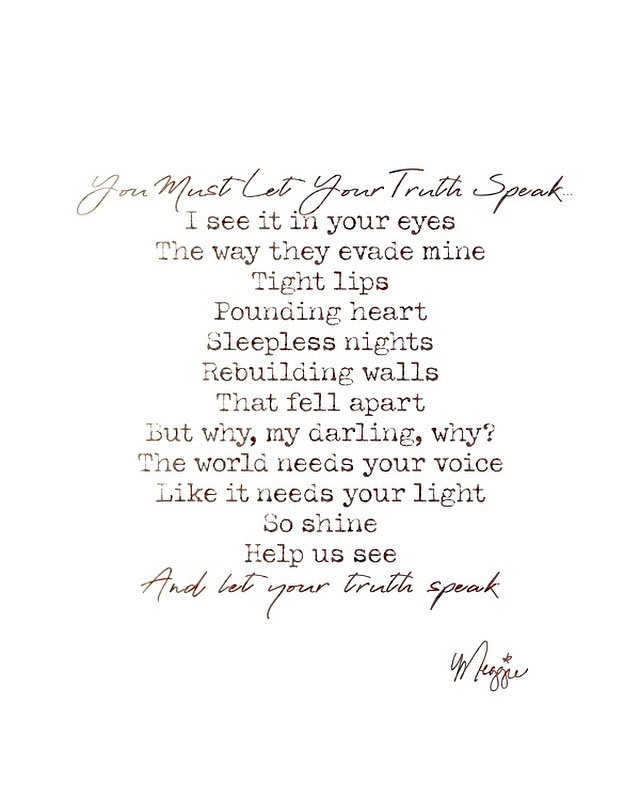 You Must Let Your Truth Speak...
I see it in your eyes
The way they evade mine
Tight lips
Pounding heart
Sleepless nights
Rebuilding walls
That fell apart
But why, my darling, why?
The world needs your voice
Like it needs your light
So shine
Help us see
And let your truth speak
Meggie